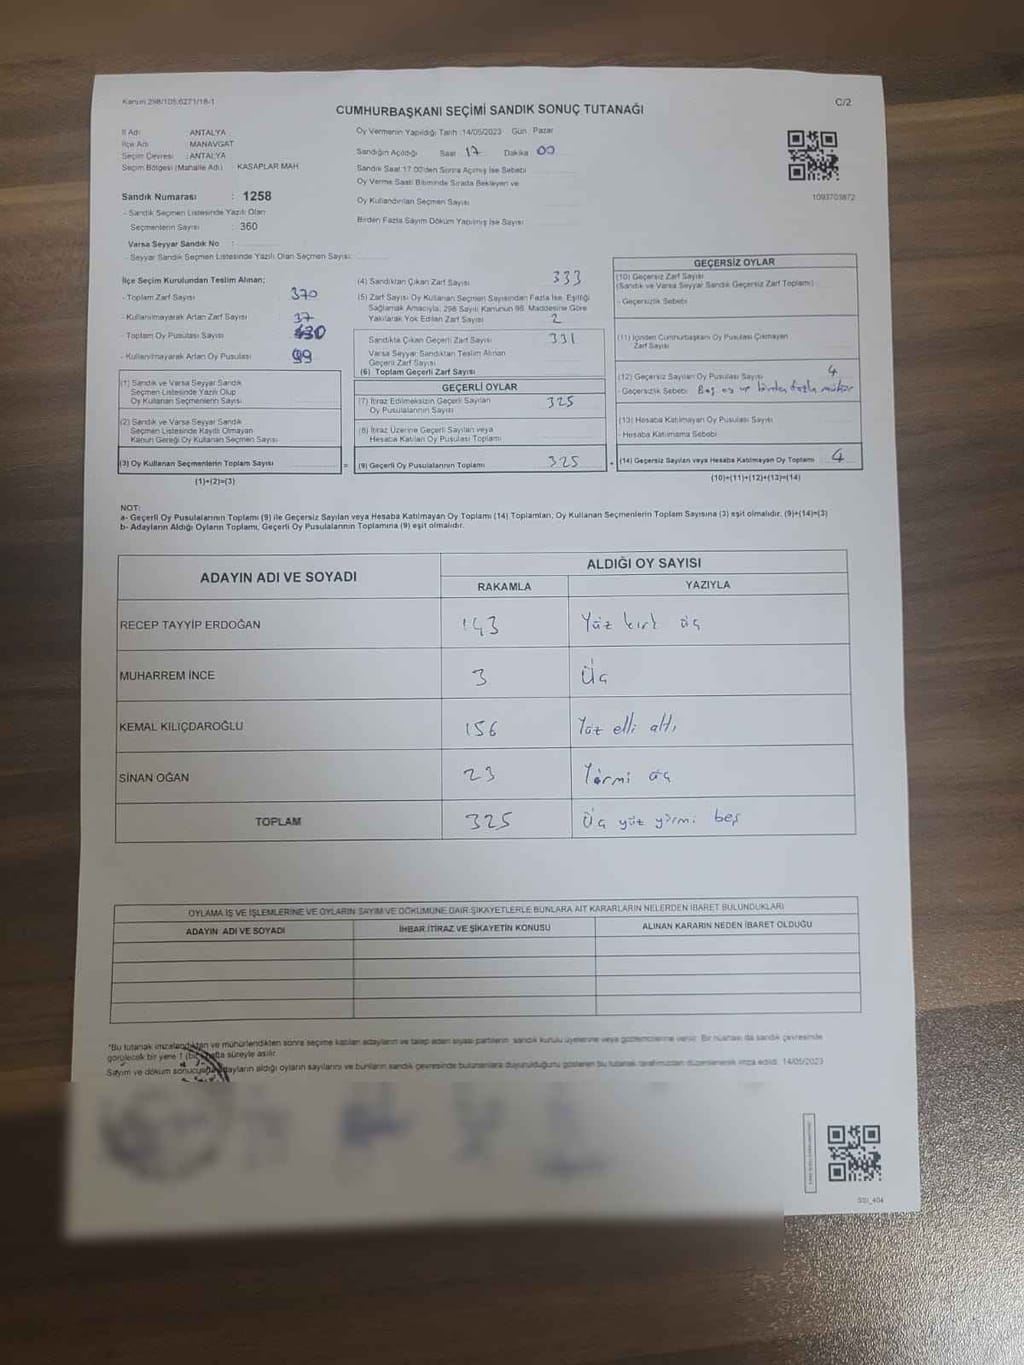 Kanun 298/105;6271/18-1
CUMHURBAŞKANI SEÇİMİ SANDIK SONUÇ TUTANAĞI
C/2
İl Adı : ANTALYA
İlçe Adı : MANAVGAT
Seçim Çevresi : ANTALYA
Seçim Bölgesi (Mahalle Adı) : KASAPLAR MAH
Sandık Numarası : 1258
- Sandık Seçmen Listesinde Yazılı Olan
Seçmenlerin Sayısı : 360
Varsa Seyyar Sandık No :
- Seyyar Sandık Seçmen Listesinde Yazılı Olan Seçmen Sayısı:
Oy Vermenin Yapıldığı Tarih :14/05/2023 Gün : Pazar
Sandığın Açıldığı Saat : 17 Dakika : 00
Sandık Saat 17.00'den Sonra Açılmış İse Sebebi
Oy Verme Saati Bitiminde Sırada Bekleyen ve
Oy Kullandırılan Seçmen Sayısı
Birden Fazla Sayım Döküm Yapılmış İse Sayısı
1093703872
İlçe Seçim Kurulundan Teslim Alınan;
- Toplam Zarf Sayısı 370
- Kullanılmayarak Artan Zarf Sayısı 37
- Toplam Oy Pusulası Sayısı 430
- Kullanılmayarak Artan Oy Pusulası 99
(1) Sandık ve Varsa Seyyar Sandık
Seçmen Listesinde Yazılı Olup
Oy Kullanan Seçmenlerin Sayısı
(2) Sandık ve Varsa Seyyar Sandık
Seçmen Listesinde Kayıtlı Olmayan
Kanun Gereği Oy Kullanan Seçmen Sayısı
(3) Oy Kullanan Seçmenlerin Toplam Sayısı =
(1)+(2)=(3)
(4) Sandıktan Çıkan Zarf Sayısı 333
(5) Zarf Sayısı Oy Kullanan Seçmen Sayısından Fazla İse, Eşitliği
Sağlamak Amacıyla, 298 Sayılı Kanunun 98. Maddesine Göre
Yakılarak Yok Edilen Zarf Sayısı 2
Sandıkta Çıkan Geçerli Zarf Sayısı 331
Varsa Seyyar Sandıktan Teslim Alınan
Geçerli Zarf Sayısı
(6) Toplam Geçerli Zarf Sayısı
GEÇERLİ OYLAR
(7) İtiraz Edilmeksizin Geçerli Sayılan
Oy Pusulalarının Sayısı 325
(8) İtiraz Üzerine Geçerli Sayılan veya
Hesaba Katılan Oy Pusulası Toplamı
(9) Geçerli Oy Pusulalarının Toplamı 325 +
GEÇERSİZ OYLAR
(10) Geçersiz Zarf Sayısı
(Sandık ve Varsa Seyyar Sandık Geçersiz Zarf Toplamı)
- Geçersizlik Sebebi
(11) İçinden Cumhurbaşkanı Oy Pusulası Çıkmayan
Zarf Sayısı
(12) Geçersiz Sayılan Oy Pusulası Sayısı 4
- Geçersizlik Sebebi Boş oy ve birden fazla mühür
(13) Hesaba Katılmayan Oy Pusulası Sayısı
- Hesaba Katılmama Sebebi
(14) Geçersiz Sayılan veya Hesaba Katılmayan Oy Toplamı 4
(10)+(11)+(12)+(13)=(14)
NOT:
a- Geçerli Oy Pusulalarının Toplamı (9) ile Geçersiz Sayılan veya Hesaba Katılmayan Oy Toplamı (14) Toplamları, Oy Kullanan Seçmenlerin Toplam Sayısına (3) eşit olmalıdır. (9)+(14)=(3)
b- Adayların Aldığı Oyların Toplamı, Geçerli Oy Pusulalarının Toplamına (9) eşit olmalıdır.
ADAYIN ADI VE SOYADI
ALDIĞI OY SAYISI
RAKAMLA YAZIYLA
RECEP TAYYİP ERDOĞAN 143 Yüz kırk üç
MUHARREM İNCE 3 Üç
KEMAL KILIÇDAROĞLU 156 Yüz elli altı
SİNAN OĞAN 23 Yirmi üç
TOPLAM 325 Üç yüz yirmi beş
OYLAMA İŞ VE İŞLEMLERİNE VE OYLARIN SAYIM VE DÖKÜMÜNE DAİR ŞİKAYETLERLE BUNLARA AİT KARARLARIN NELERDEN İBARET BULUNDUKLARI
ADAYIN ADI VE SOYADI İHBAR,İTİRAZ VE ŞİKAYETİN KONUSU ALINAN KARARIN NEDEN İBARET OLDUĞU
"Bu tutanak imzalandıktan ve mühürlendikten sonra seçime katılan adayların ve talep eden siyasi partilerin sandık kurulu üyelerine veya gözlemcilerine verilir. Bir nüshası da sandık çevresinde
görülecek bir yere 1 (bir) hafta süreyle asılır.
Sayım ve döküm sonucunda adayların aldığı oyların sayılarını ve bunların sandık çevresinde bulunanlara duyurulduğunu gösteren bu tutanak tarafımızdan düzenlenerek imza edildi. 14/05/2023
SSI_404